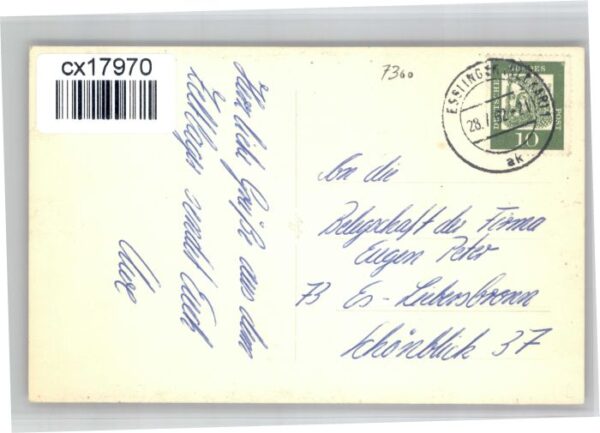 cx17970
7360
ESSLINGEN (NECKAR) 1
28.7.62
ak
DEUTSCHE BUNDESPOST
10
Herzliche Grüße aus dem
Zeltlager sendet Euch
An die
Belegschaft der Firma
Eugen Peter
73 Es-Liebersbronn
Schönblick 37